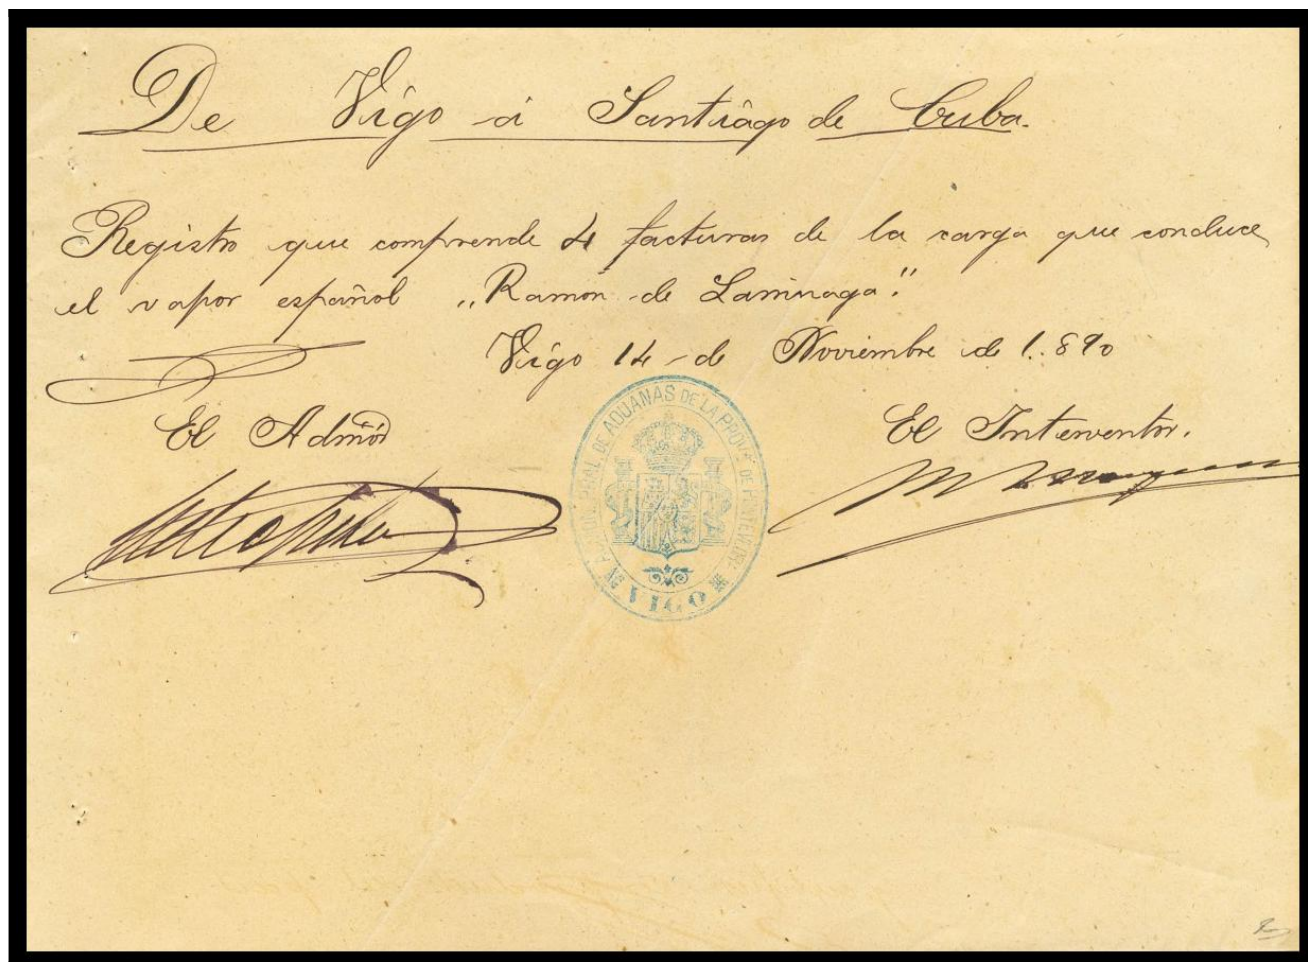 De Vigo á Santiago de Cuba.
Registro que comprende 4 facturas de la carga que conduce
el vapor español „Ramón de Larrinaga".
Vigo 14 de Noviembre de 1.890
El Admõr
El Interventor.
ADMON. PRAL DE ADUANAS DE LA PROVª DE PONTEVEDRA
VIGO